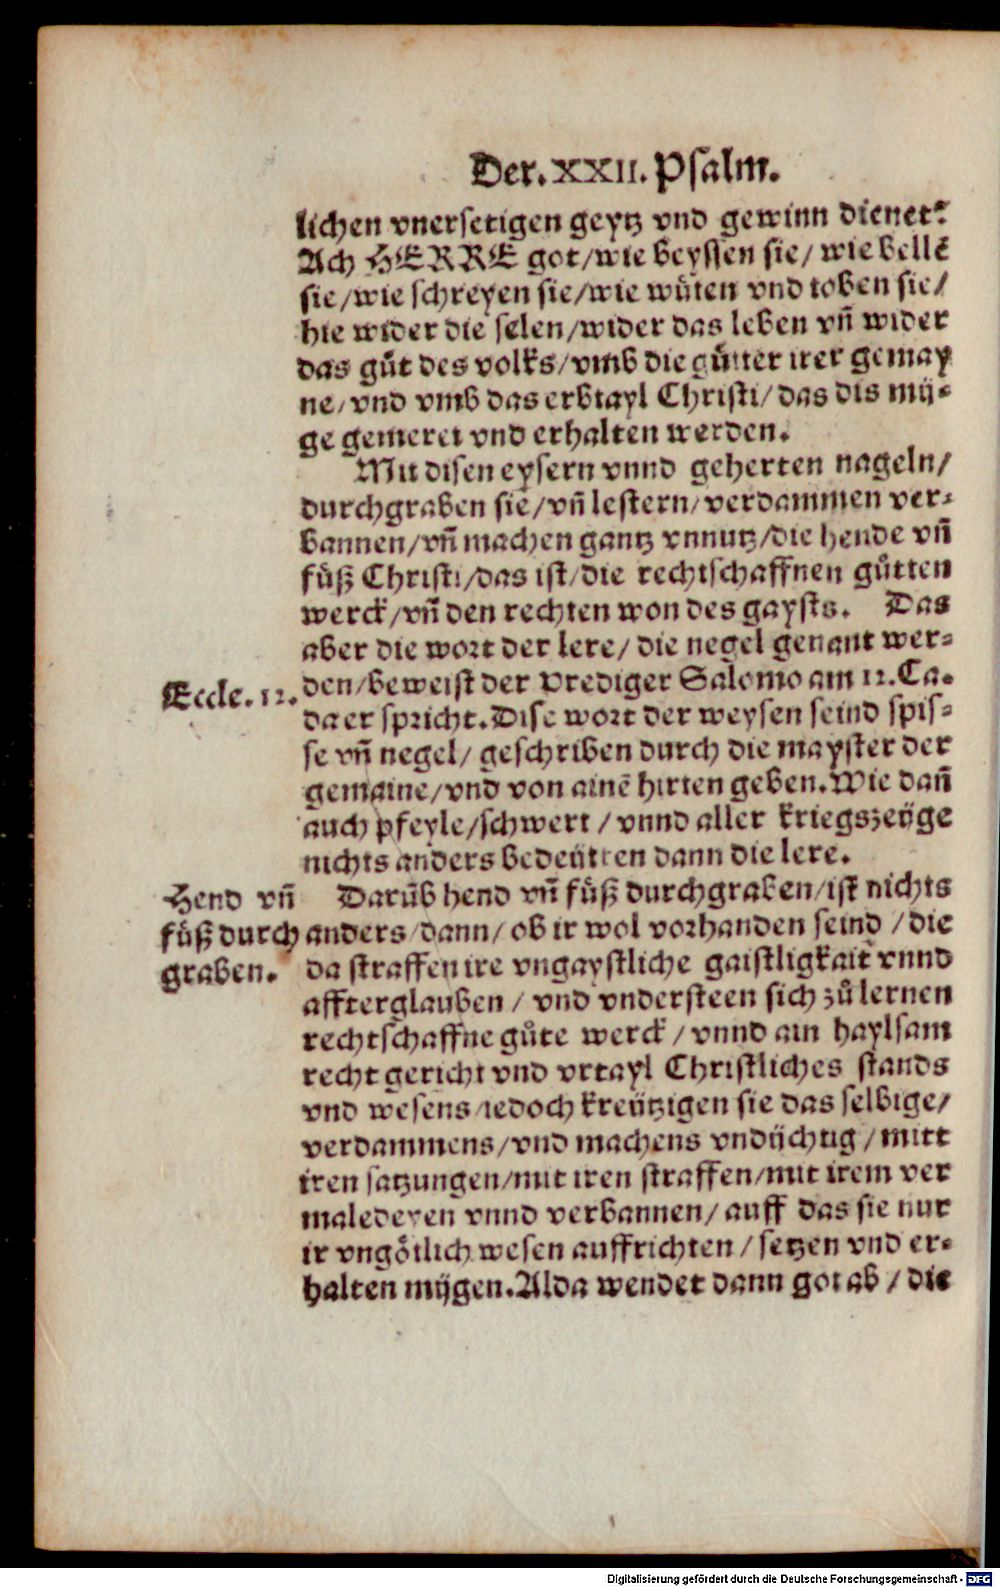 Der. XXII. Psalm.
lichen vnersetigen geytz vnd gewinn dienet?
Ach HERRE got/wie beyssen sie/ wie bellē
sie/wie schreyen sie/wie wuͤten vnd toben sie/
hie wider die selen/wider das leben vn̄ wider
das guͤt des volks/vmb die guͤtter irer gemay
ne/vnd vmb das erbtayl Christi/das dis mü-
ge gemeret vnd erhalten werden.
Mit disen eysern vnnd geherten nageln/
durchgraben sie/vn̄ lestern/verdammen ver-
bannen/vn̄ machen gantz vnnutz/die hende vn̄
fuͤß Christi/das ist/die rechtschaffnen guͤtten
werck/vn̄ den rechten won des gaysts. Das
aber die wort der lere/die negel genant wer-
Eccle. 12.
den/beweist der Prediger Salomo am 12. Ca.
da er spricht. Dise wort der weysen seind spis-
se vn̄ negel/ geschriben durch die mayster der
gemaine/vnd von ainē hirten geben. Wie dan̄
auch pfeyle/schwert / vnnd aller kriegszeüge
nichts anders bedeütten dann die lere.
Hend vn̄
fuͤß durch
graben.
Darūb hend vn̄ fuͤß durchgraben/ist nichts
anders/dann/ob ir wol vorhanden seind /die
da straffen ire vngaystliche gaistligkait vnnd
affterglauben / vnd vndersteen sich zuͦ lernen
rechtschaffne guͤte werck / vnnd ain haylsam
recht gericht vnd vrtayl Christliches stands
vnd wesens/iedoch kreützigen sie das selbige/
verdammens/vnd machens vndüchtig / mitt
iren satzungen/mit iren straffen/mit irem ver
maledeyen vnnd verbannen/ auff das sie nur
ir vngoͤtlich wesen auffrichten / setzen vnd er-
halten mügen. Alda wendet dann got ab / die
Digitalisierung gefördert durch die Deutsche Forschungsgemeinschaft - DFG